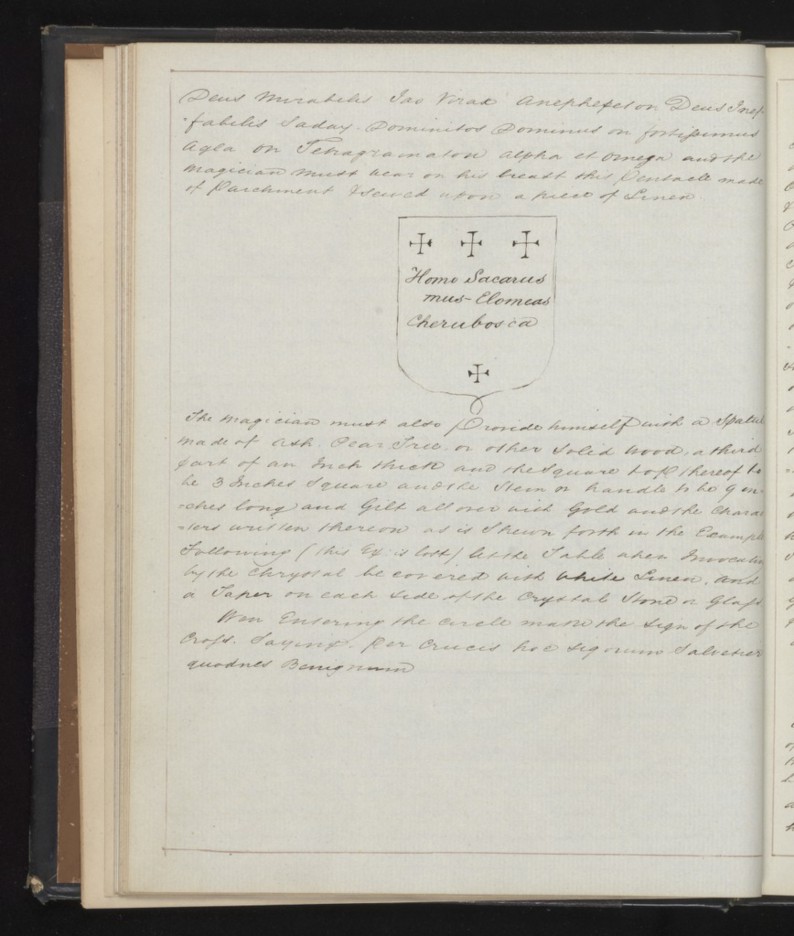 Deus Mirabilis Iao Virax Anephexeton Deus Inef-
fabilis Saday. Dominitos Dominus on fortissimus
Agla on Tetragramaton Alpha et Omega and the
Magician must bear on his breast this Pentacle made
of Parchment & sewed upon a piece of Linen
Homo Sacarus
mus- Elomeas
Cherubosca
The Magician must also Provide himself with a Spatul
made of Ash. Pear Tree. or other Solid Wood, a third
part of an Inch thick and the Square top thereof to
be 3 Inches Square and the Stem or handle to be 9 in
-ches long and Gilt all over with Gold and the Charac
-ters written thereon as is Shewn forth in the Exampl
Following (this Ex: is lost) let the Table when Invocatin
by the Chrystal be covered with White Linen. and
a Taper on each side of the Crystal Stone or Glass
When Entering the circle make the sign of the
Cross. Saying. Per Crucis hoc
quodnes Benignum